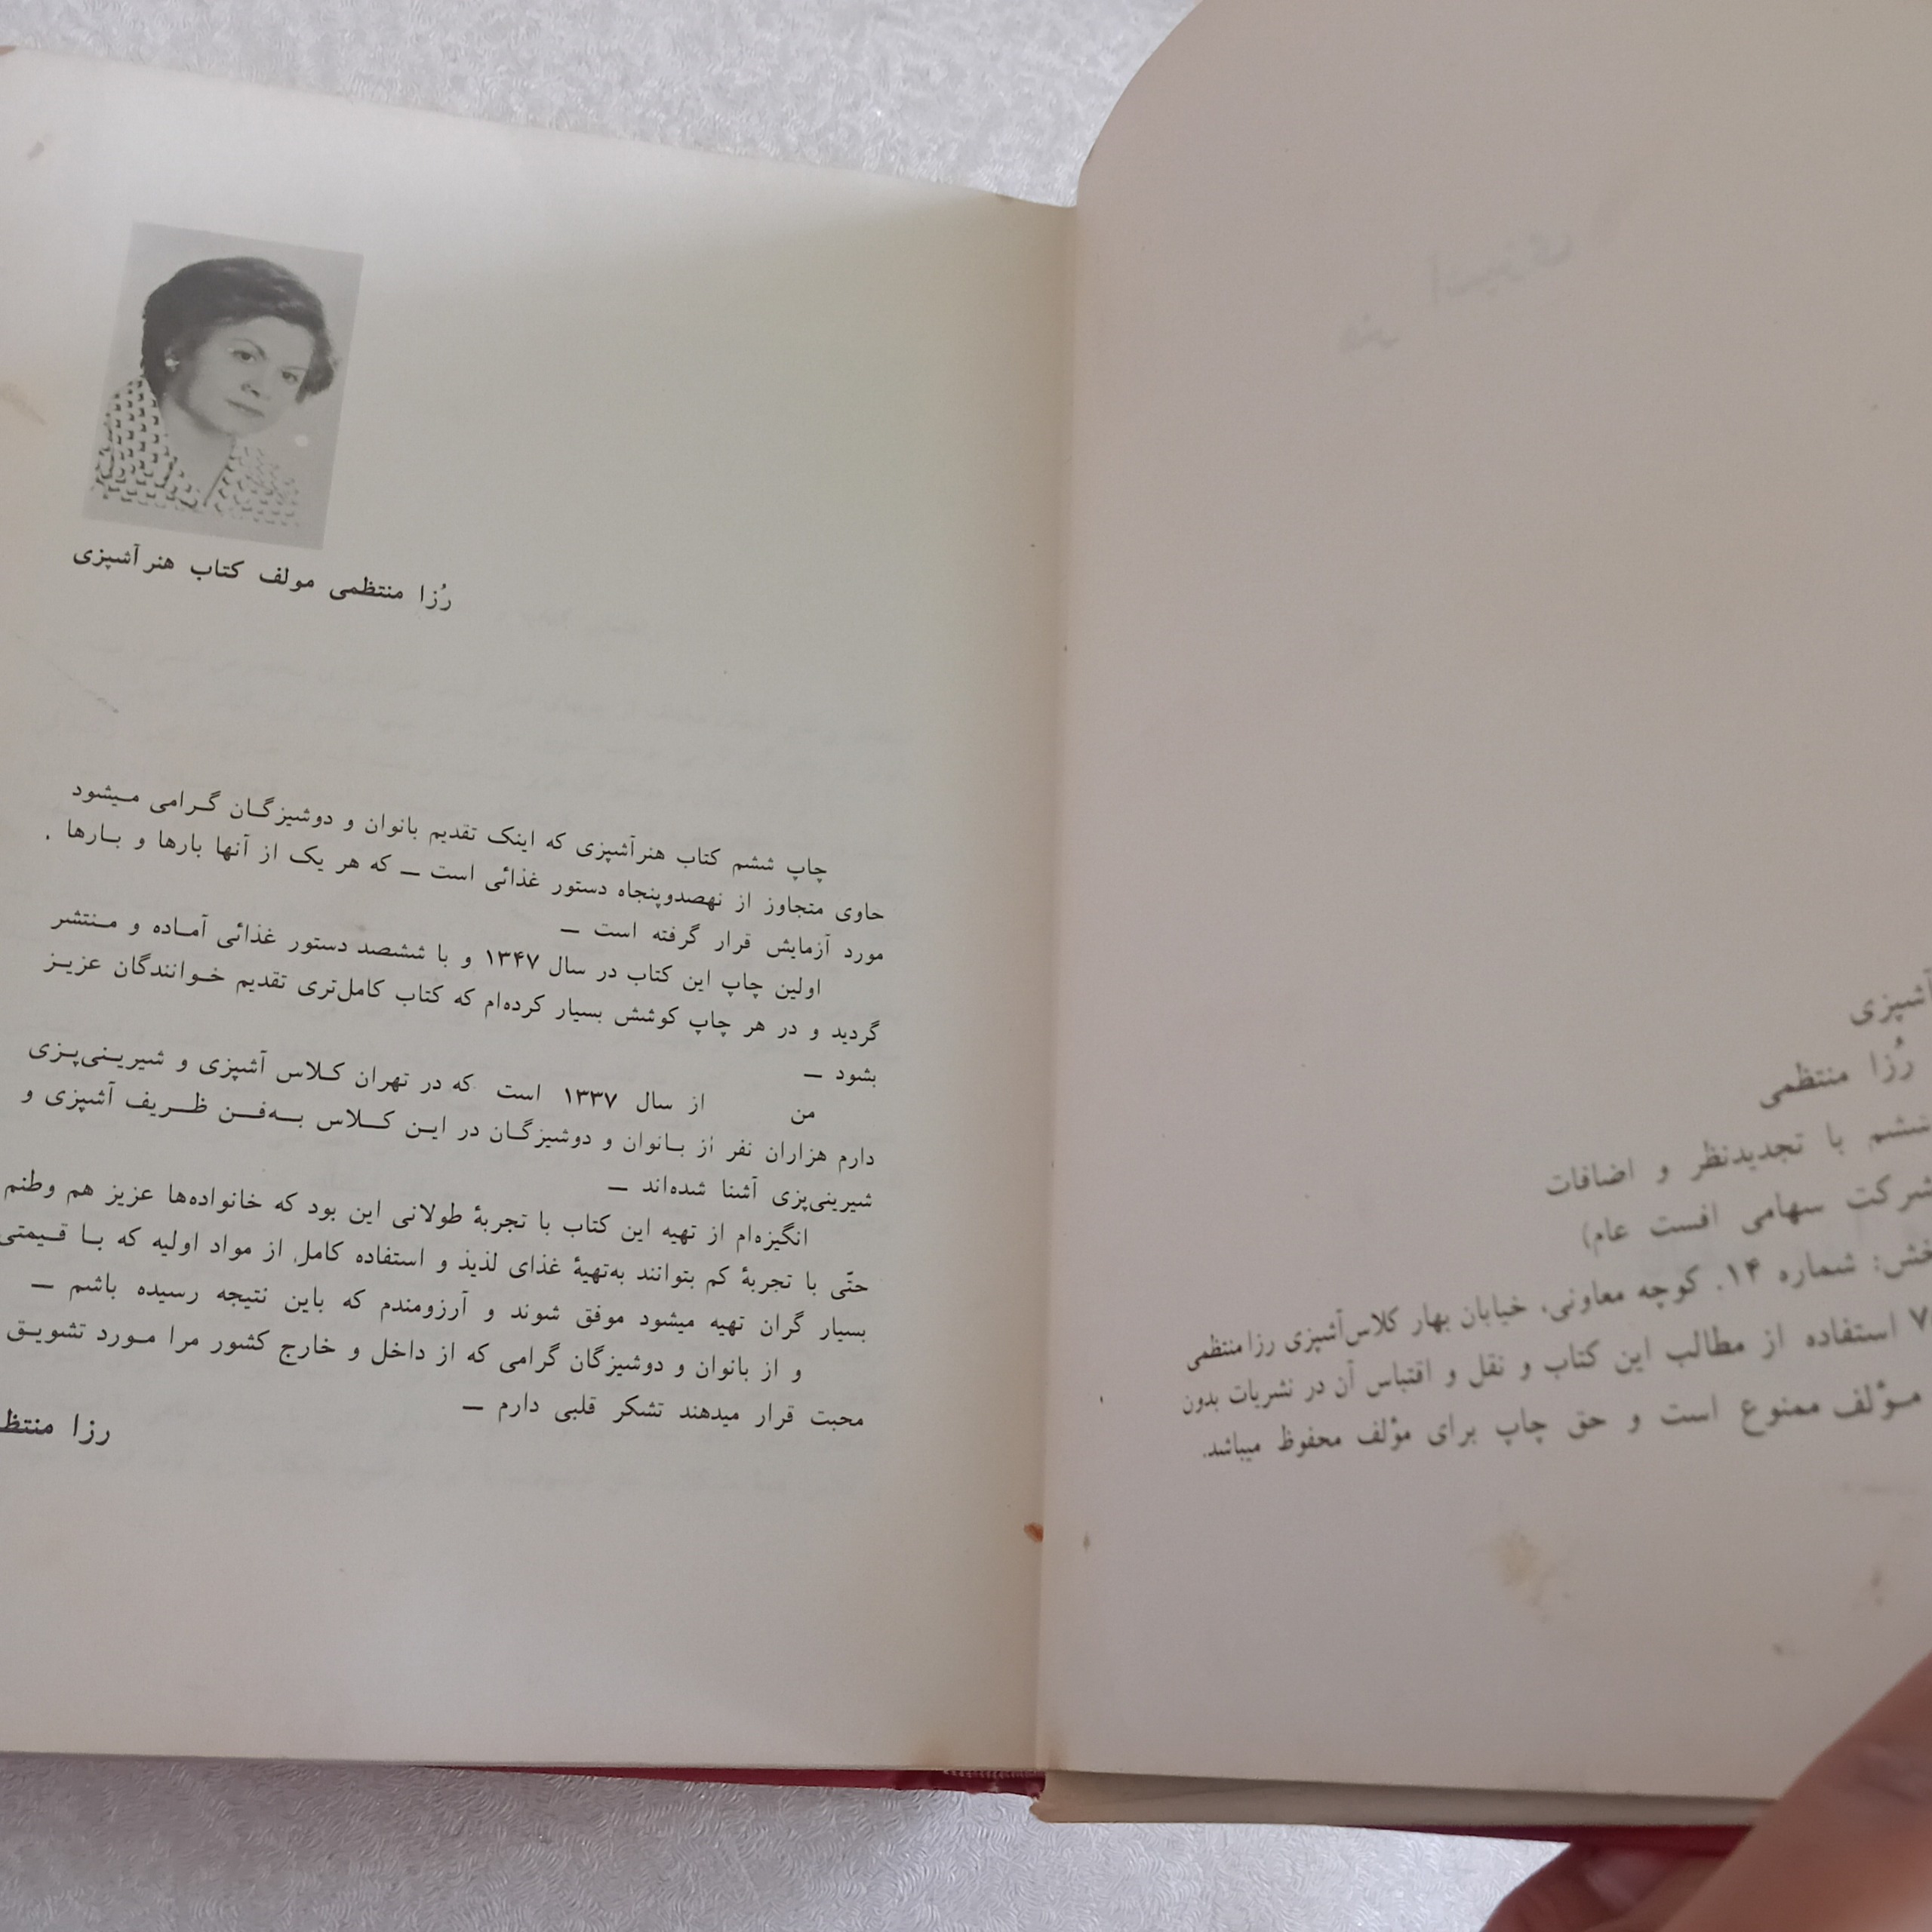 آشپزی
رُزا منتظمی
ششم با تجدیدنظر و اضافات
شرکت سهامی افست عام)
خش: شماره ۱۴. کوچه معاونی، خیابان بهار کلاس آشپزی رزا منتظمی
استفاده از مطالب این کتاب و نقل و اقتباس آن در نشریات بدون
مؤلف ممنوع است و حق چاپ برای مؤلف محفوظ میباشد.
رُزا منتظمی مولف کتاب هنر آشپزی
چاپ ششم کتاب هنر آشپزی که اینک تقدیم بانوان و دوشیزگان گرامی میشود
حاوی متجاوز از نهصدوپنجاه دستور غذائی است ــ که هر یک از آنها بارها و بارها .
مورد آزمایش قرار گرفته است ــ
اولین چاپ این کتاب در سال ۱۳۴۷ و با ششصد دستور غذائی آماده و منتشر
گردید و در هر چاپ کوشش بسیار کرده‌ام که کتاب کامل‌تری تقدیم خوانندگان عزیز
بشود ــ
من از سال ۱۳۳۷ است که در تهران کلاس آشپزی و شیرینی‌پزی
دارم هزاران نفر از بانوان و دوشیزگان در این کلاس به‌فن ظریف آشپزی و
شیرینی‌پزی آشنا شده‌اند ــ
انگیزه‌ام از تهیه این کتاب با تجربهٔ طولانی این بود که خانواده‌ها عزیز هم وطنم
حتّی با تجربهٔ کم بتوانند به‌تهیهٔ غذای لذیذ و استفاده کامل از مواد اولیه که با قیمتی
بسیار گران تهیه میشود موفق شوند و آرزومندم که باین نتیجه رسیده باشم ــ
و از بانوان و دوشیزگان گرامی که از داخل و خارج کشور مرا مورد تشویق
محبت قرار میدهند تشکر قلبی دارم ــ
رزا منتظ